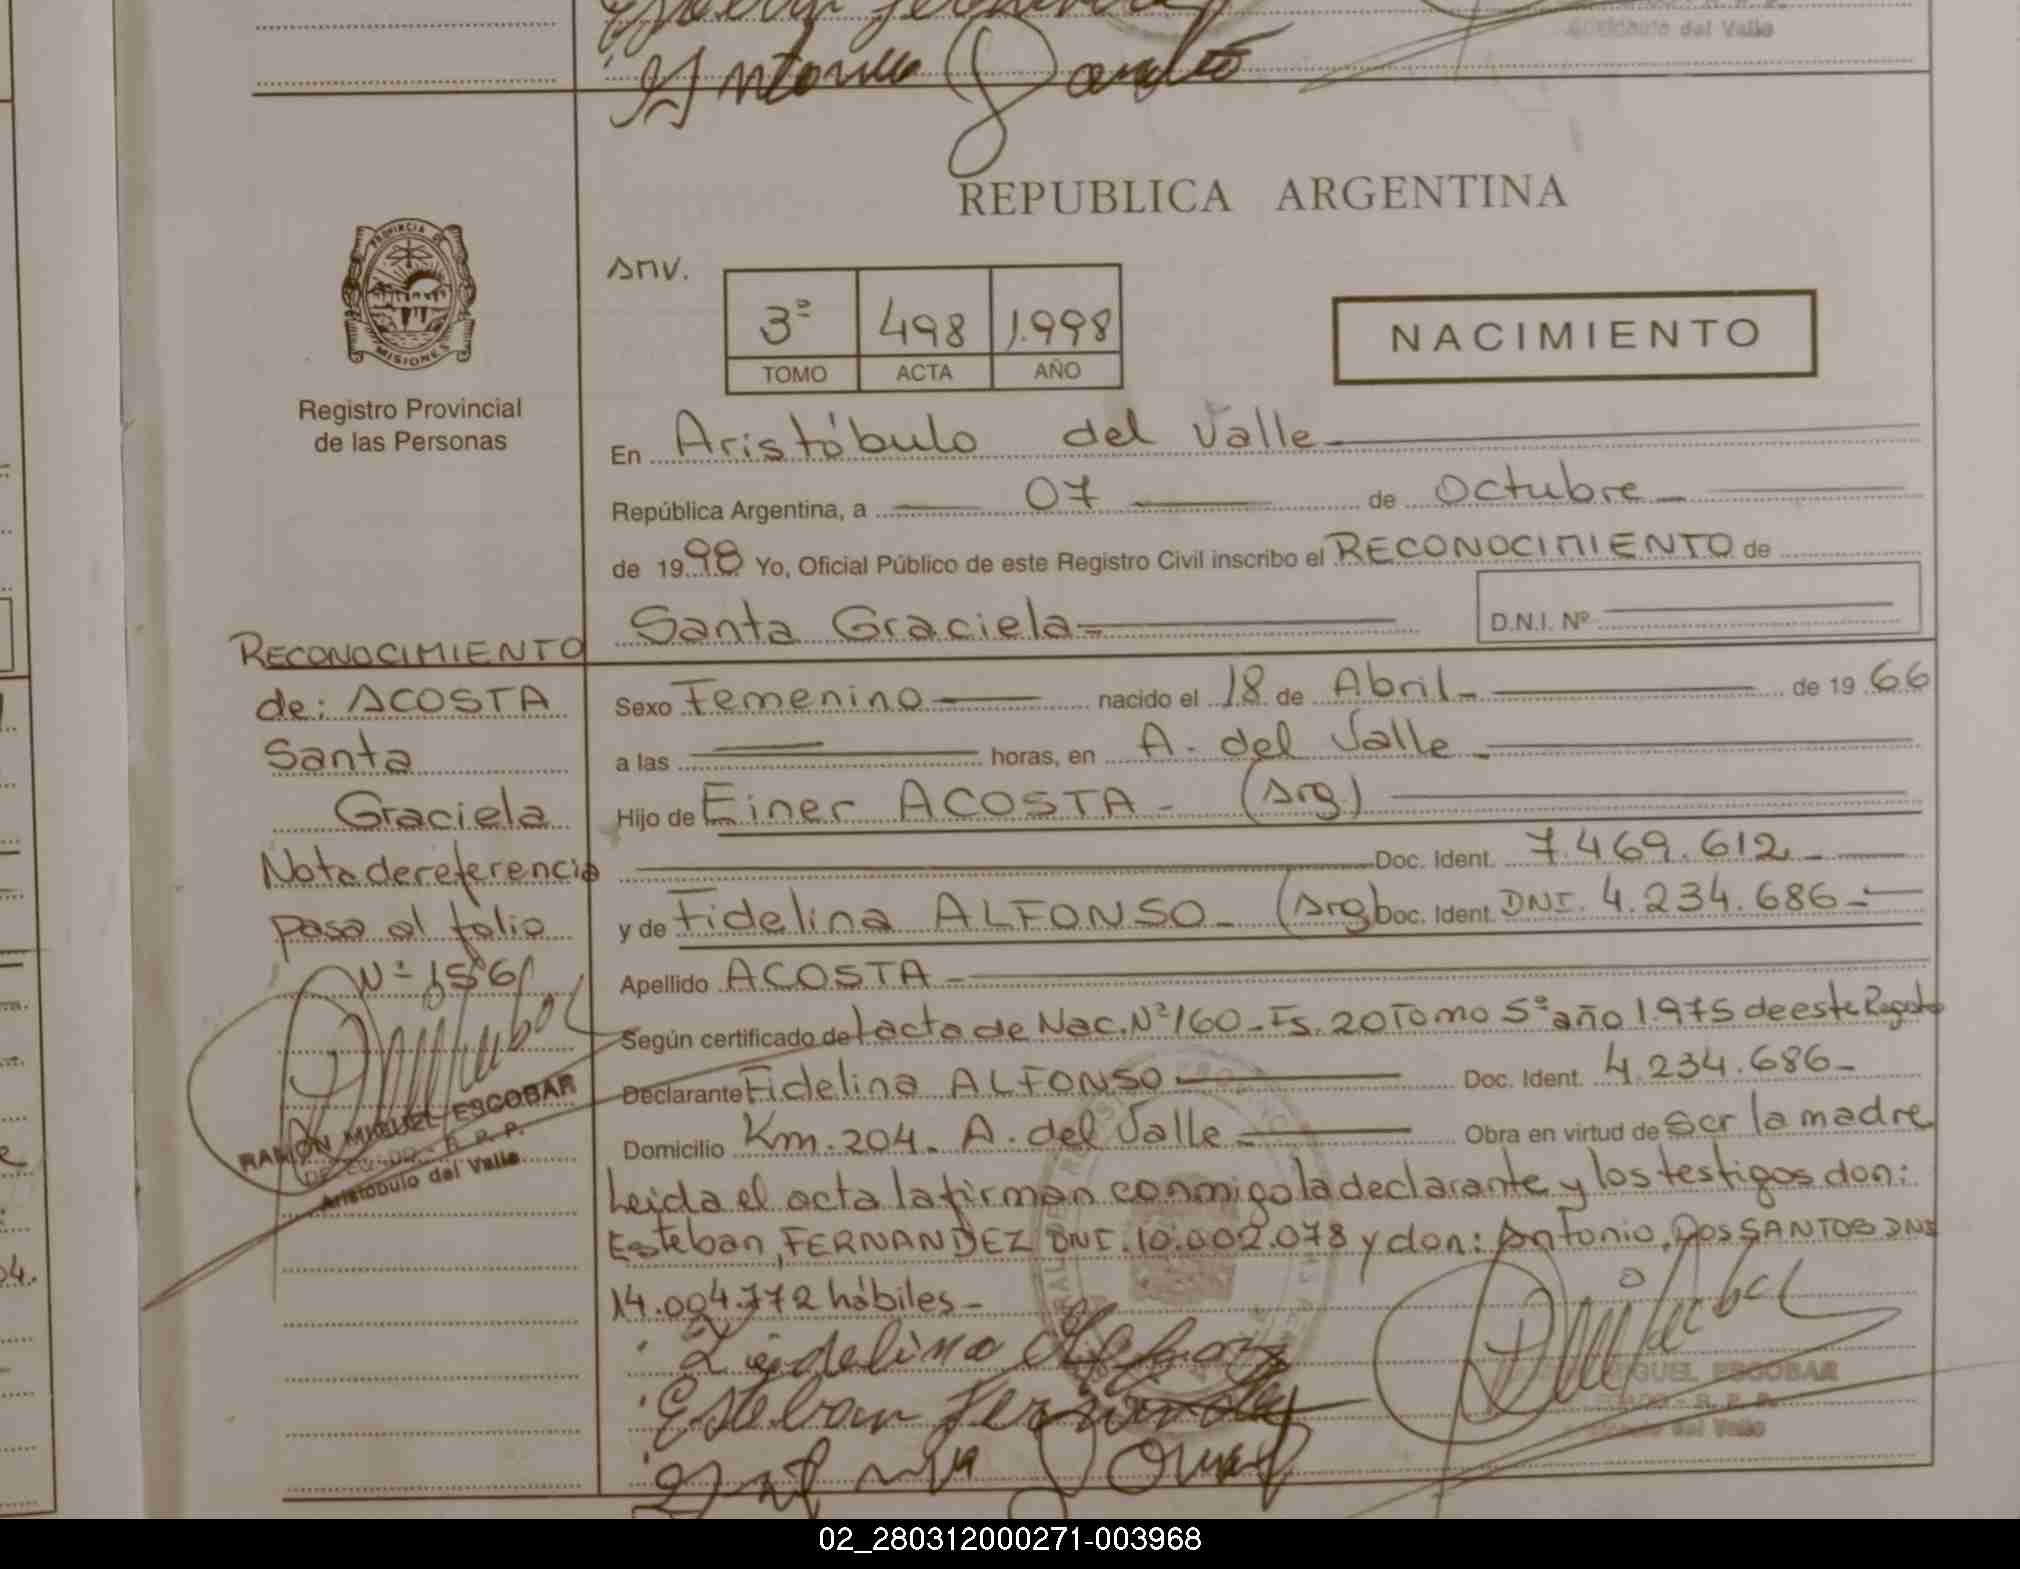 Aristóbulo del Valle
REPUBLICA ARGENTINA
PROVINCIA DE
MISIONES
Registro Provincial
de las Personas
snv.
3º 498 1.998
TOMO ACTA AÑO
NACIMIENTO
En Aristóbulo del Valle
República Argentina, a 07 de Octubre
de 1998 Yo, Oficial Público de este Registro Civil inscribo el RECONOCIMIENTO de
Santa Graciela
D.N.I. Nº
RECONOCIMIENTO
de: ACOSTA
Santa
Graciela
Nota de referencia
pasa al folio
Nº 156
RAMON MIGUEL ESCOBAR
Aristóbulo del Valle
Sexo Femenino nacido el 18 de Abril de 1966
a las horas, en A. del Valle
Hijo de Einer ACOSTA (arg)
Doc. Ident. 7.469.612
y de Fidelina ALFONSO (arg) Doc. Ident. DNI. 4.234.686
Apellido ACOSTA
Según certificado de acta de Nac. Nº 160 Fs. 20 Tomo 5º año 1.975 de este
Declarante Fidelina ALFONSO Doc. Ident. 4.234.686
Domicilio Km. 204 A. del Valle Obra en virtud de ser la madre
Leida el acta la firman conmigo la declarante y los testigos don:
Esteban, FERNANDEZ DNI. 10.002.078 y don: Antonio, Dos SANTOS DNI
14.004.772 hábiles
Esteban Fernandez
MIGUEL ESCOBAR
del Valle
02_280312000271-003968